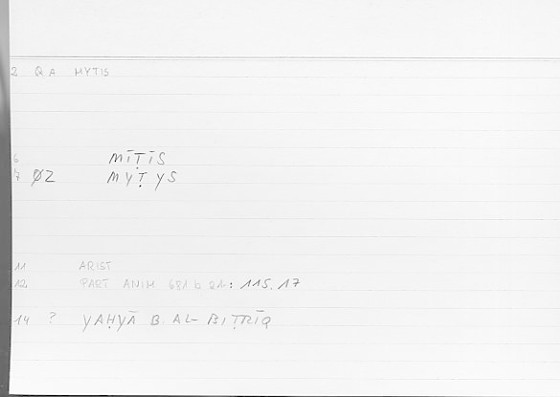 2 QA MYTIS
6 MĪṬĪS
7 ØZ MYṬYS
11 ARIST
12 PART ANIM 681 b 21: 115.17
14 ? YAḤYĀ B AL-BIṬRĪQ